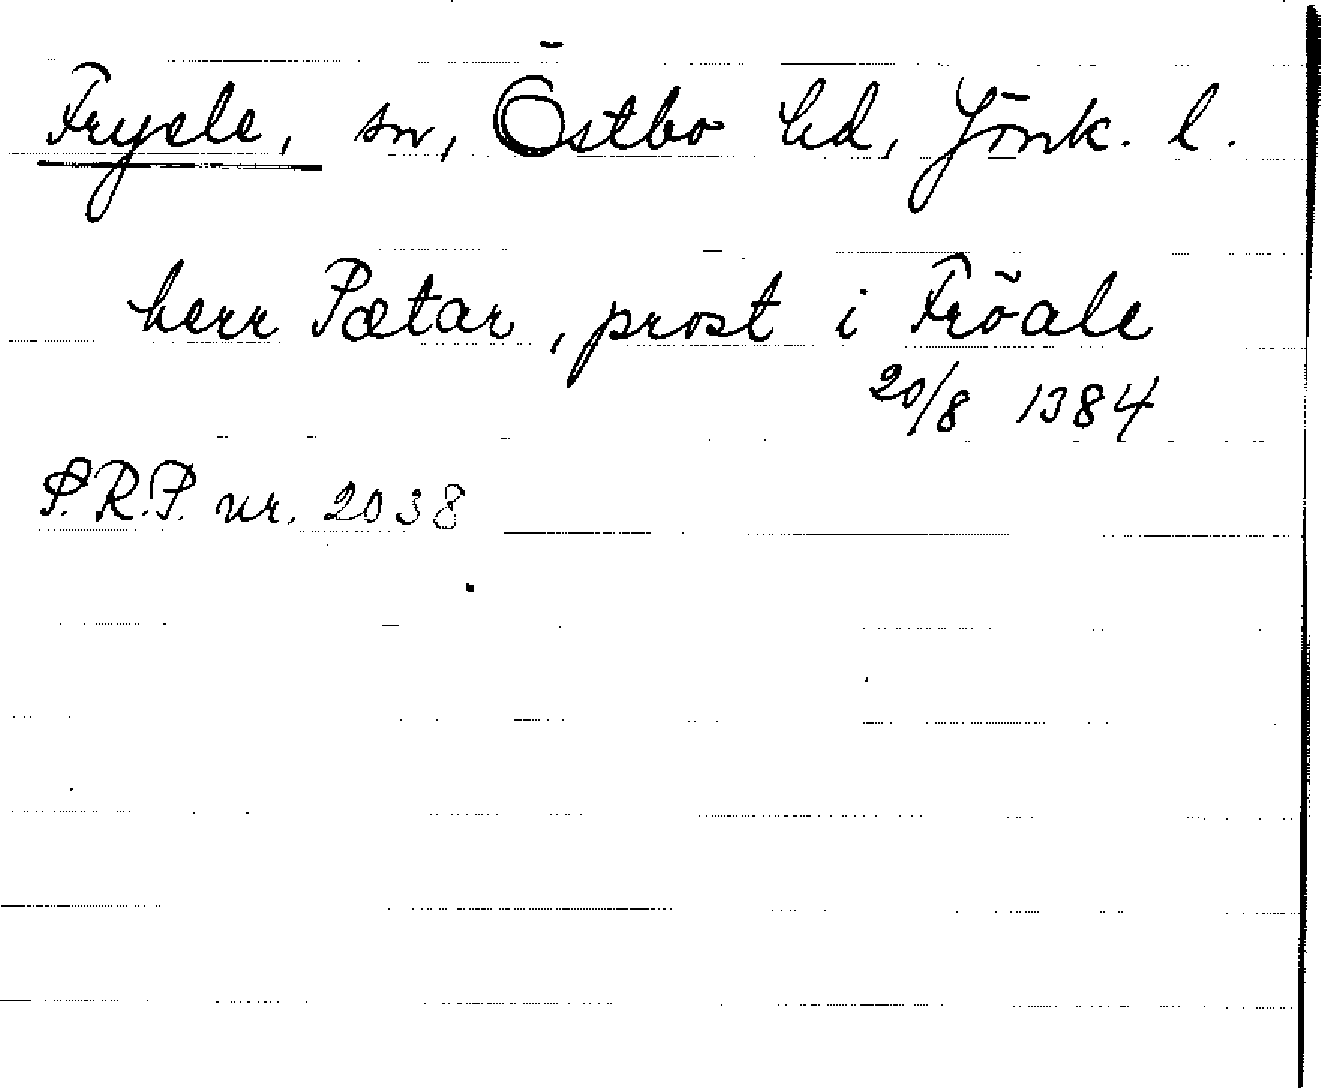 Fryele, sn, Östbo hd, Jönk. l.
herr Pætar, prost i Fröale
20/8 1384
S.R.P. nr. 2038